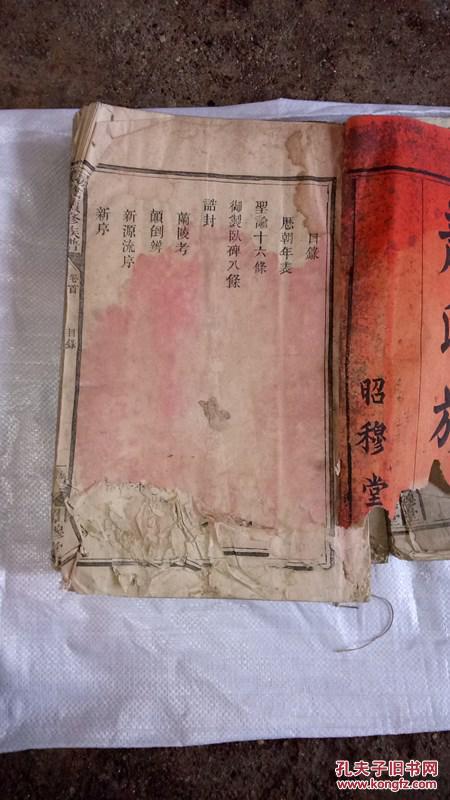 目錄
歷朝年表
聖諭十六條
御製臥碑八條
誥封
蘭陵考
顛倒辨
新源流序
新序
修族譜
卷首
目錄
氏族
昭穆堂
孔夫子旧书网
www.kongfz.com